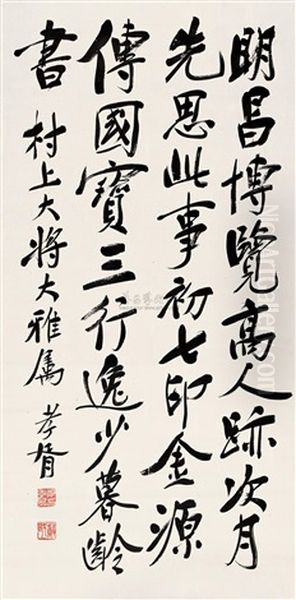 明昌博覽高人跡次月
先思此事初七印金源
傳國寶三行逸少暮齡
書 村上大将大雅属 孝胥